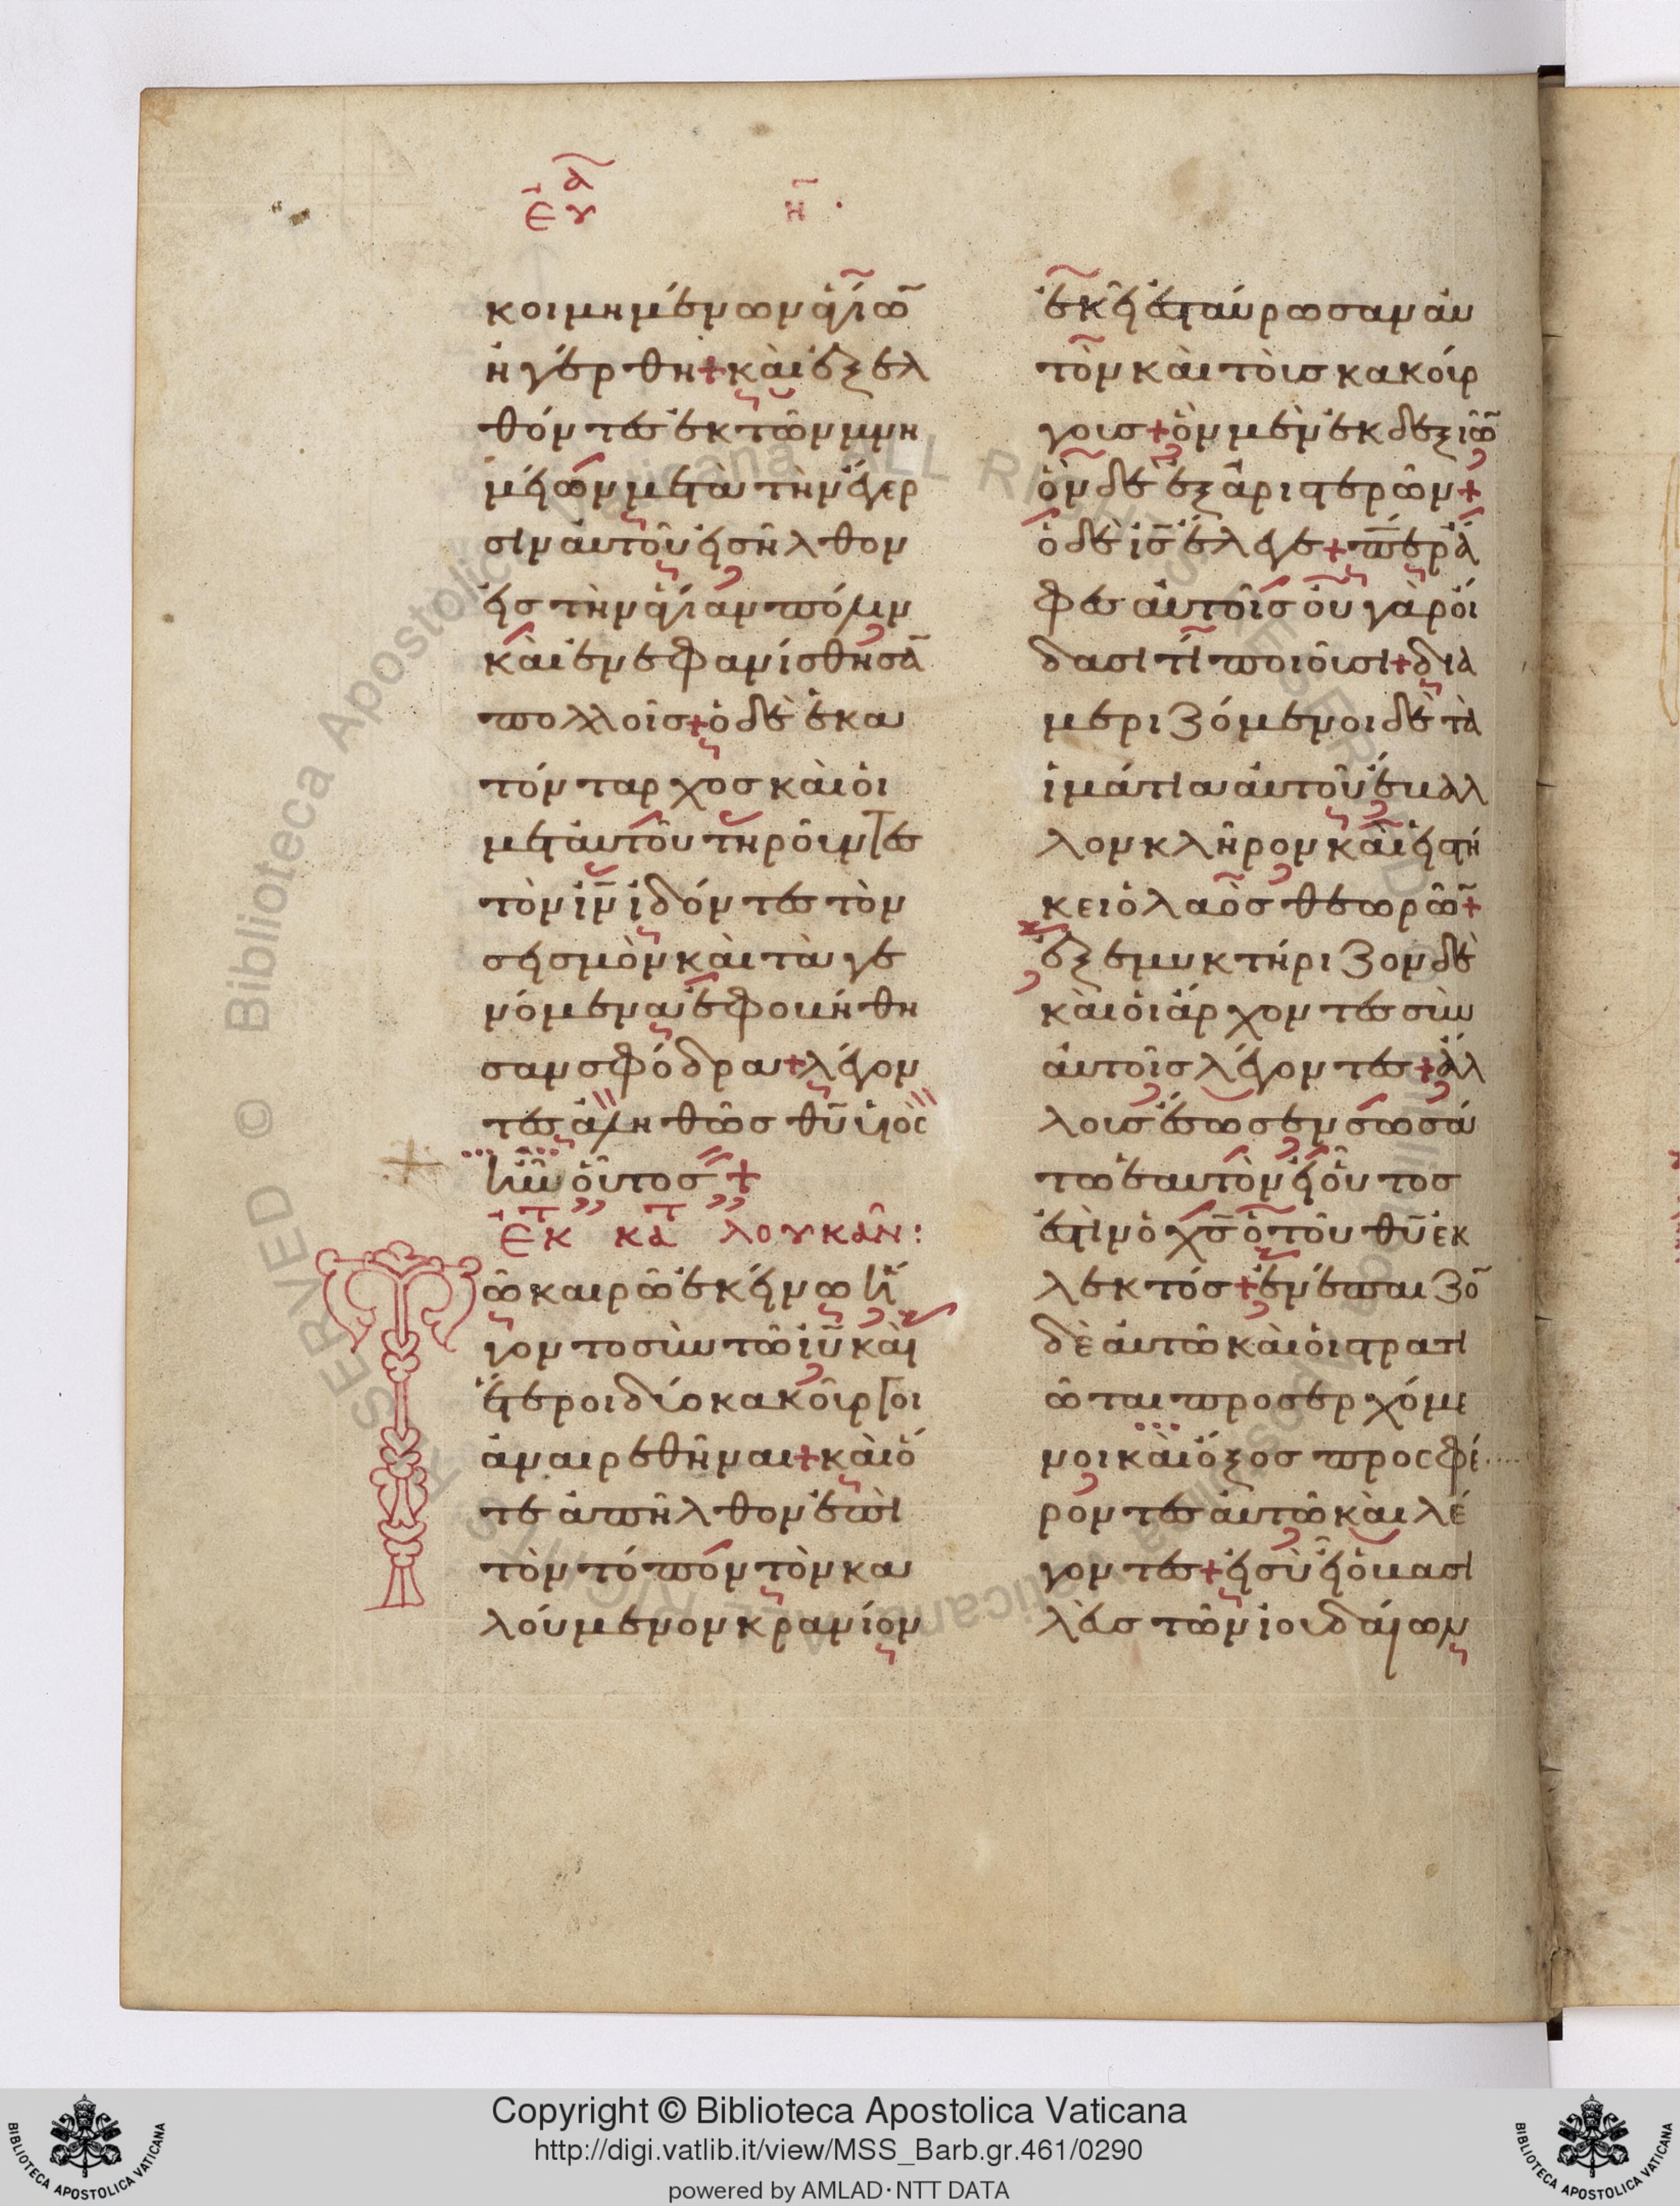 εὐα η
κοιμημένων ἁγίω̄
ἠγέρθη + καὶ ἐξελ
θόντες ἐκ τῶν μνη
μείων μετὰ τὴν ἔγερ
σιν αὐτοῦ εἰσῆλθον
εἰς τὴν ἁγίαν πόλιν
καὶ ἐνεφανίσθησᾱ
πολλοῖς + ὁ δὲ ἑκα
τόνταρχος καὶ οἱ
μετ αὐτοῦ τηροῦντες
τὸν ῑν̄ ἰδόντες τὸν
σεισμὸν καὶ τὰ γε
νόμενα ἐφοβήθη
σαν σφόδρα + λέγον
τες ἀληθῶς θ̄ῡ υἱὸς
ἦν οὗτος +
ἐκ τ κατ λουκᾶν :
Τῶ καιρῶ ἐκείνω ἤ
γοντο σὺν τῶ ῑῡ καὶ
ἕτεροι δύο κακοῦργοι
ἀναιρεθῆναι + καὶ ὅ
τε ἀπῆλθον ἐπὶ
τὸν τόπον τὸν κα
λούμενον κρανίον
ἐκεῖ ἐσταύρωσαν αὐ
τὸν καὶ τοὺς κακούρ
γους + ὃν μὲν ἐκ δεξιῶ̄
ὃν δὲ ἐξ ἀριστερῶν +
ὁ δὲ ῑς̄ ἔλεγε + π̄ε̄ρ̄ ἄ
φες αὐτοῖς οὐ γὰρ οἴ
δασι τί ποιοῦσι + δια
μεριζόμενοι δὲ τὰ
ἱμάτια αὐτοῦ ἔβαλ
λον κλῆρον καὶ εἱστή
κει ὁ λαὸς θεωρῶ̄ +
ἐξεμυκτήριζον δὲ
καὶ οἱ ἄρχοντες σὺν
αὐτοῖς λέγοντες + ἄλ
λους ἔσωσεν σωσά
τω ἑαυτὸν εἰ οὗτος
ἐστιν ὁ χ̄ς̄ ὁ τοῦ θ̄ῡ ἐκ
λεκτός + ἐνέπαιζο̄
δὲ αὐτῶ καὶ οἱ στρατι
ῶται προσερχόμε
νοι καὶ ὄξος προσφέ
ροντες αὐτῶ καὶ λέ
γοντες + εἰ σὺ εἶ ὁ βασι
λεὺς τῶν ἰουδαίων
© Biblioteca Apostolica Vaticana ALL RIGHTS RESERVED
Copyright © Biblioteca Apostolica Vaticana
http://digi.vatlib.it/view/MSS_Barb.gr.461/0290
powered by AMLAD·NTT DATA
BIBLIOTECA APOSTOLICA VATICANA
BIBLIOTECA APOSTOLICA VATICANA